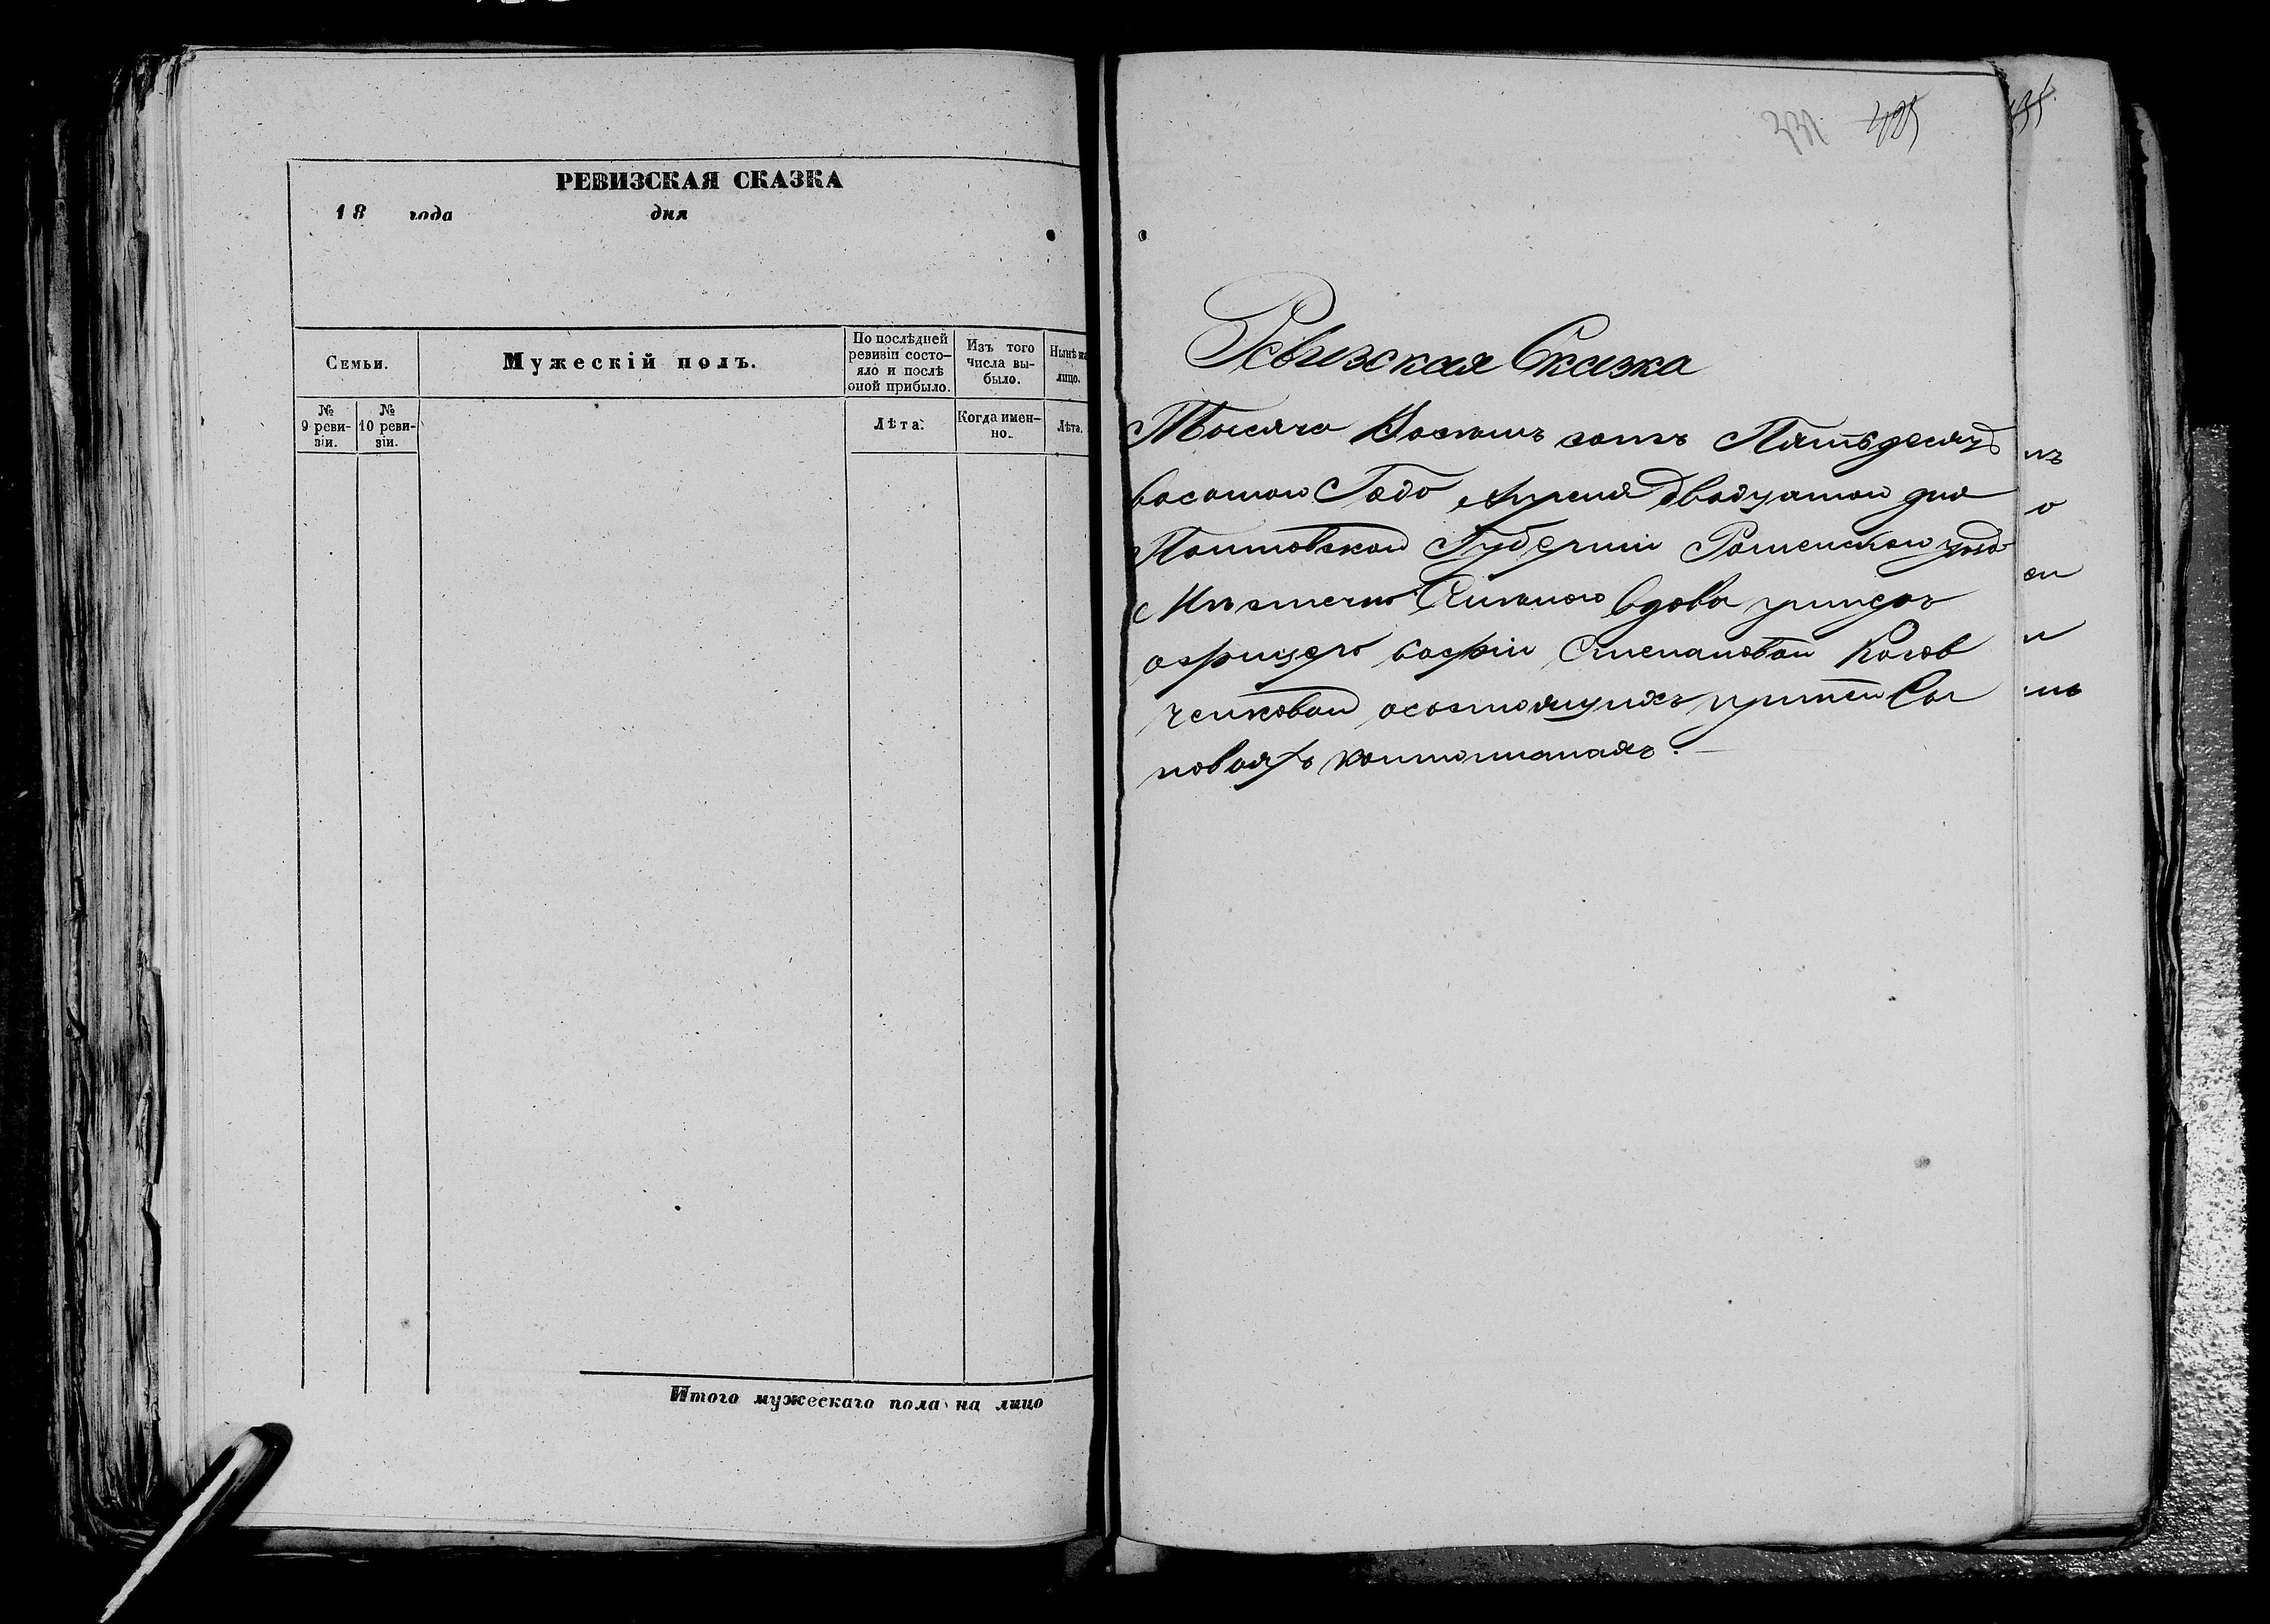 РЕВИЗСКАЯ СКАЗКА
18 года дня
Семьи.
Мужескій полъ.
По послѣдней ревизіи состо-
яло и послѣ
оной прибыло.
Изъ того
числа вы-
было.
Нынѣ на
лицо.
№
9 реви-
зіи.
№
10 реви-
зіи.
Лѣта.
Когда имен-
но.
Лѣта.
Итого мужескаго пола на лицо
Ревизская Сказка
Тысяча Восемь сотъ Пятьдесятъ
восьмого Года Апреля двадцатого дня
Полтовской Губерніи Роменского уезда
Мѣстечка вдова ундеръ
офицера Софіи Степановой
ченковой осостоящихъ притей Сы
новьяхъ контонистахъ.